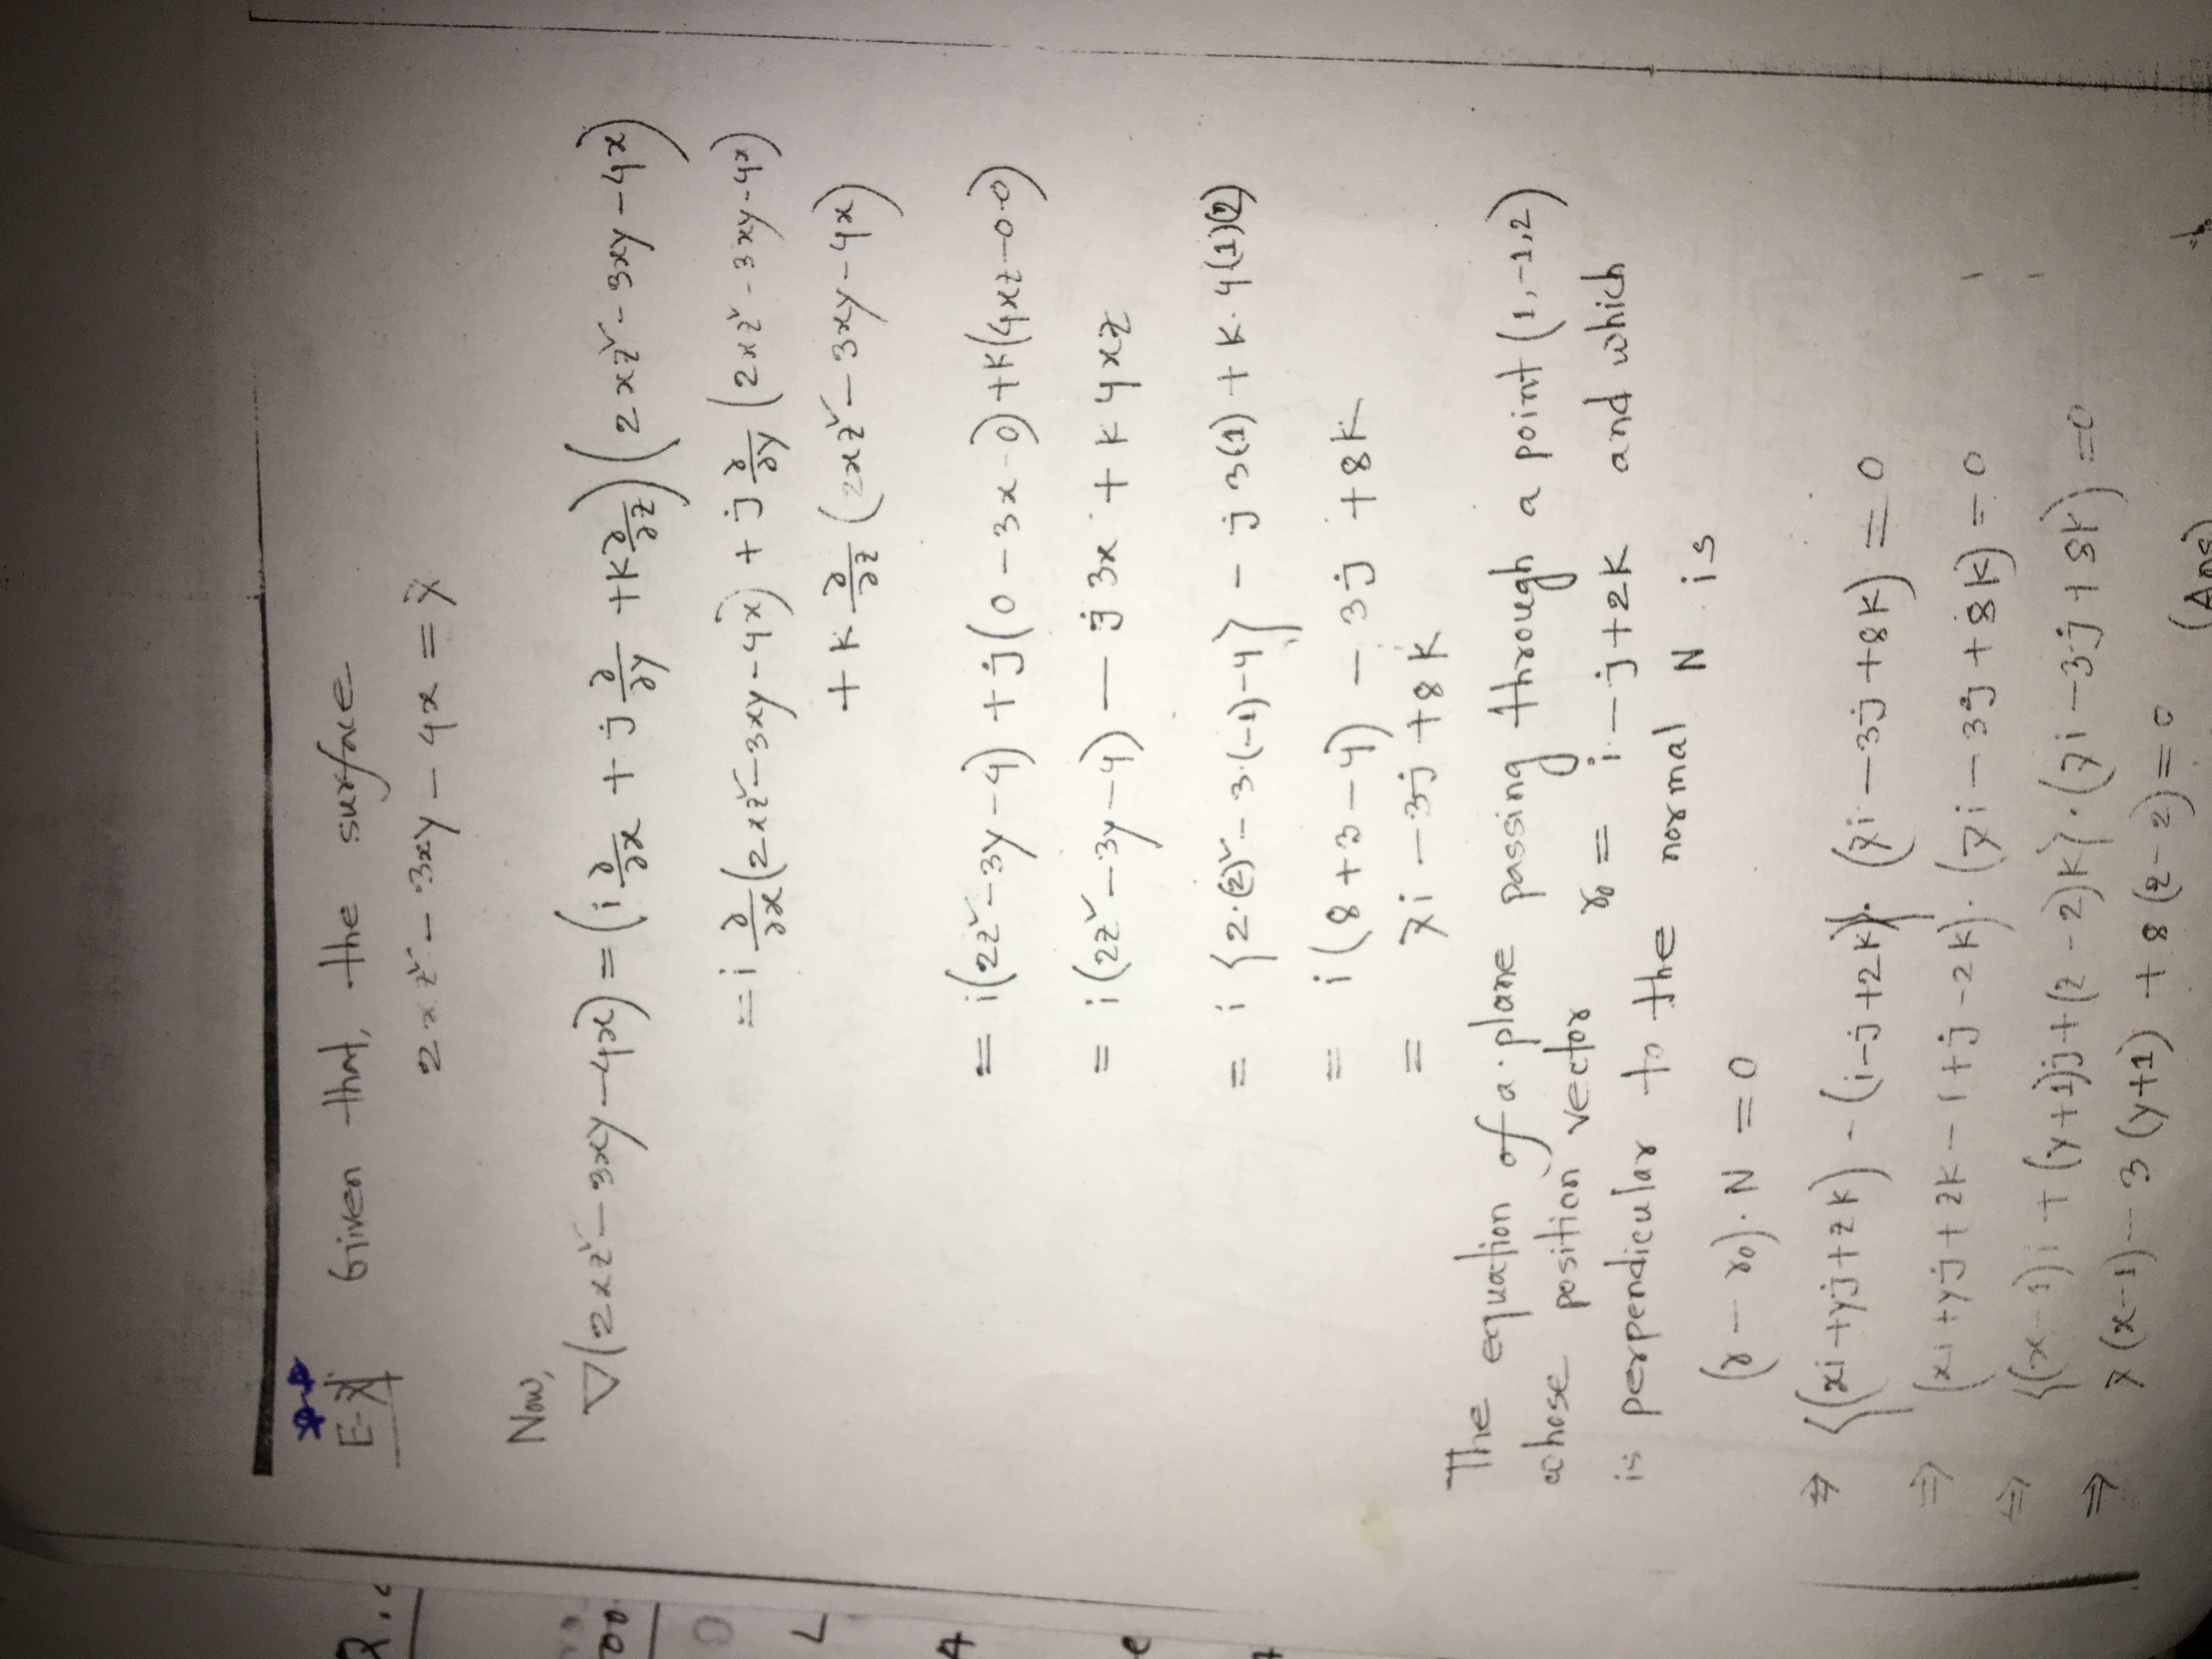 E-7 Given that, the surface
2xz² - 3xy - 4x = 7
Now,
∇(2xz² - 3xy - 4x) = (i ∂/∂x + j ∂/∂y + k ∂/∂z) (2xz² - 3xy - 4x)
= i ∂/∂x (2xz² - 3xy - 4x) + j ∂/∂y (2xz² - 3xy - 4x)
+ k ∂/∂z (2xz² - 3xy - 4x)
= i(2z² - 3y - 4) + j(0 - 3x - 0) + k(4xz - 0-0)
= i(2z² - 3y - 4) - j 3x + k 4xz
= i {2·(2)² - 3·(-1) - 4} - j 3(1) + k. 4(1)(2)
= i(8 + 3 - 4) - 3j + 8k
= 7i - 3j + 8k
The equation of a plane passing through a point (1, -1, 2)
whose position vector r₀ = i - j + 2k and which
is perpendicular to the normal N is
(r - r₀). N = 0
⇒ {(xi + yj + zk) - (i - j + 2k)}. (7i - 3j + 8k) = 0
⇒ (xi + yj + zk - i + j - 2k). (7i - 3j + 8k) = 0
⇒ {(x - 1)i + (y + 1)j + (z - 2)k}. (7i - 3j + 8k) = 0
⇒ 7(x - 1) - 3(y + 1) + 8(z - 2) = 0
(Ans)